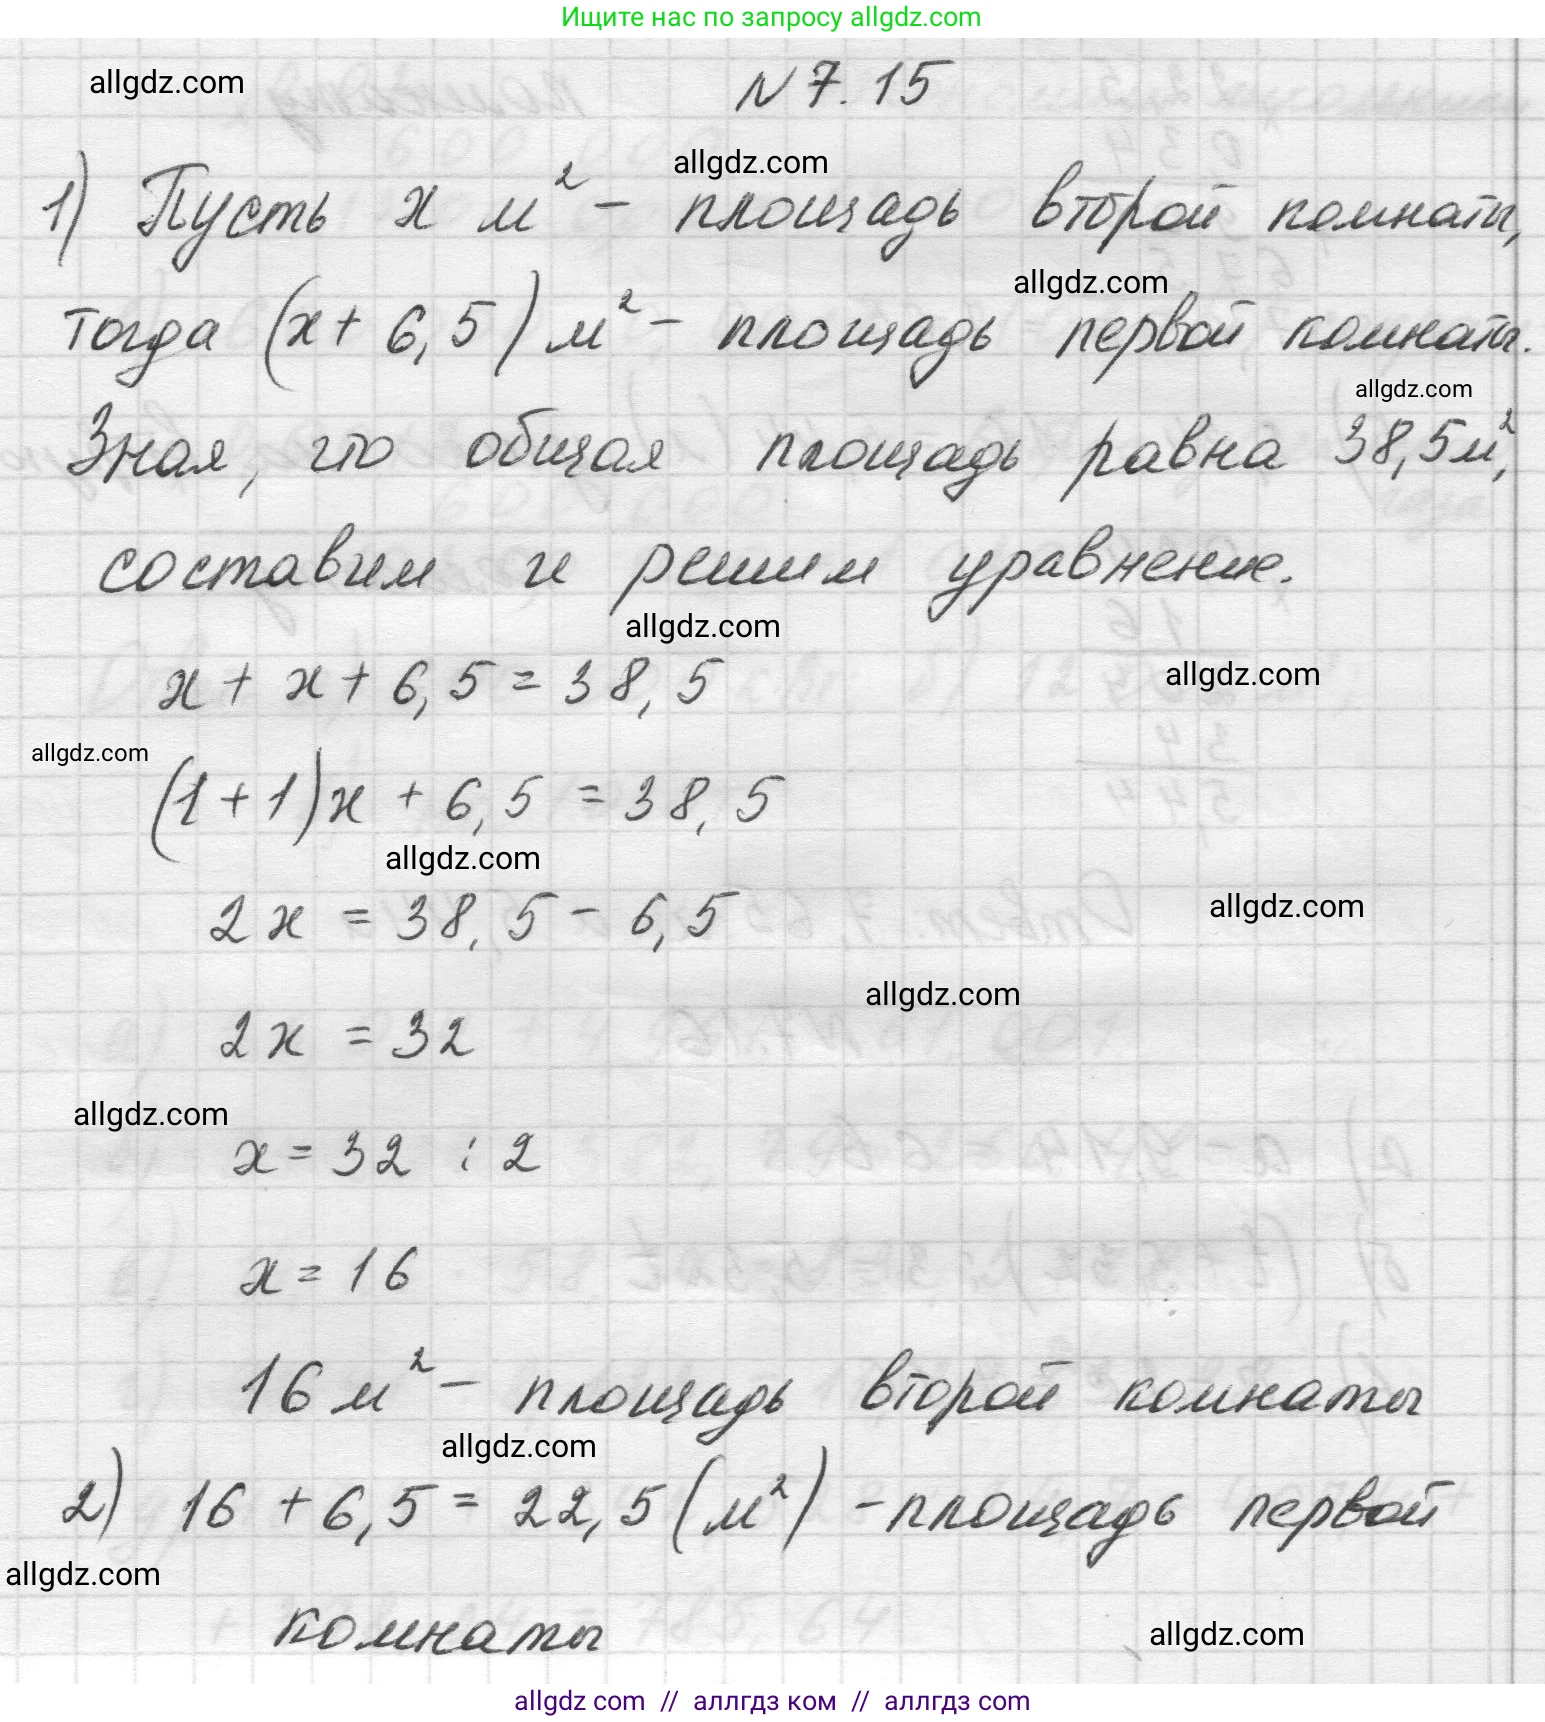 Ищите нас по запросу allgdz.com
allgdz.com
N 7. 15
allgdz.com
1) Пусть x м² - площадь второй комнаты,
allgdz.com
тогда (x + 6,5) м² - площадь первой комнаты.
allgdz.com
Зная, что общая площадь равна 38,5 м²,
составим и решим уравнение.
allgdz.com
x + x + 6,5 = 38,5
allgdz.com
allgdz.com
(1+1)x + 6,5 = 38,5
allgdz.com
2x = 38,5 - 6,5
allgdz.com
allgdz.com
2x = 32
allgdz.com
x = 32 : 2
x = 16
16 м² - площадь второй комнаты
allgdz.com
2) 16 + 6,5 = 22,5 (м²) - площадь первой
allgdz.com
комнаты
allgdz.com
allgdz com // аллгдз ком // аллгдз com